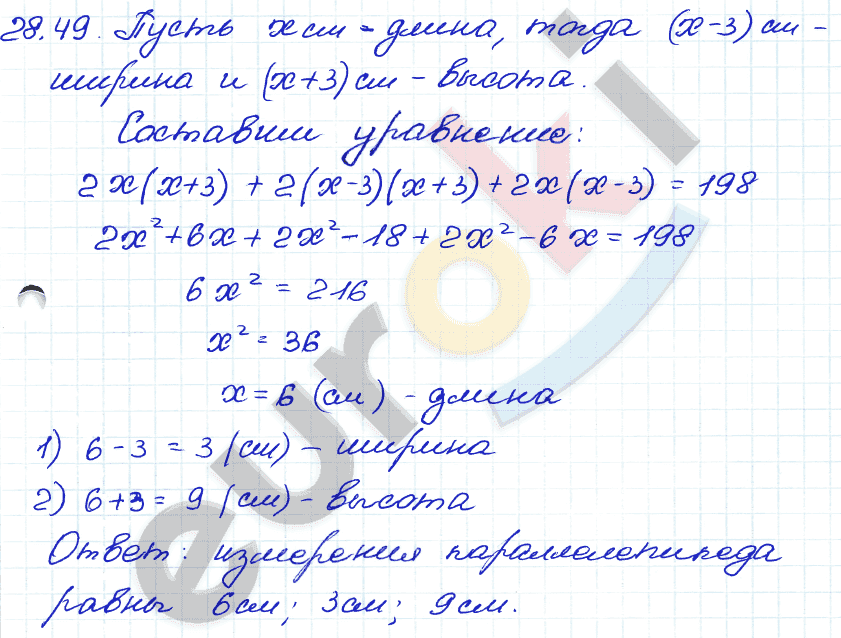 28.49. Пусть x см - длина, тогда (x-3) см -
ширина и (x+3) см - высота.
Составим уравнение:
2x(x+3) + 2(x-3)(x+3) + 2x(x-3) = 198
2x²+6x+2x²-18+2x²-6x=198
6x² = 216
x² = 36
x = 6 (см) - длина
1) 6-3 = 3 (см) - ширина
2) 6+3 = 9 (см) - высота
Ответ: измерения параллелепипеда
равны 6см; 3см; 9см.
euroki